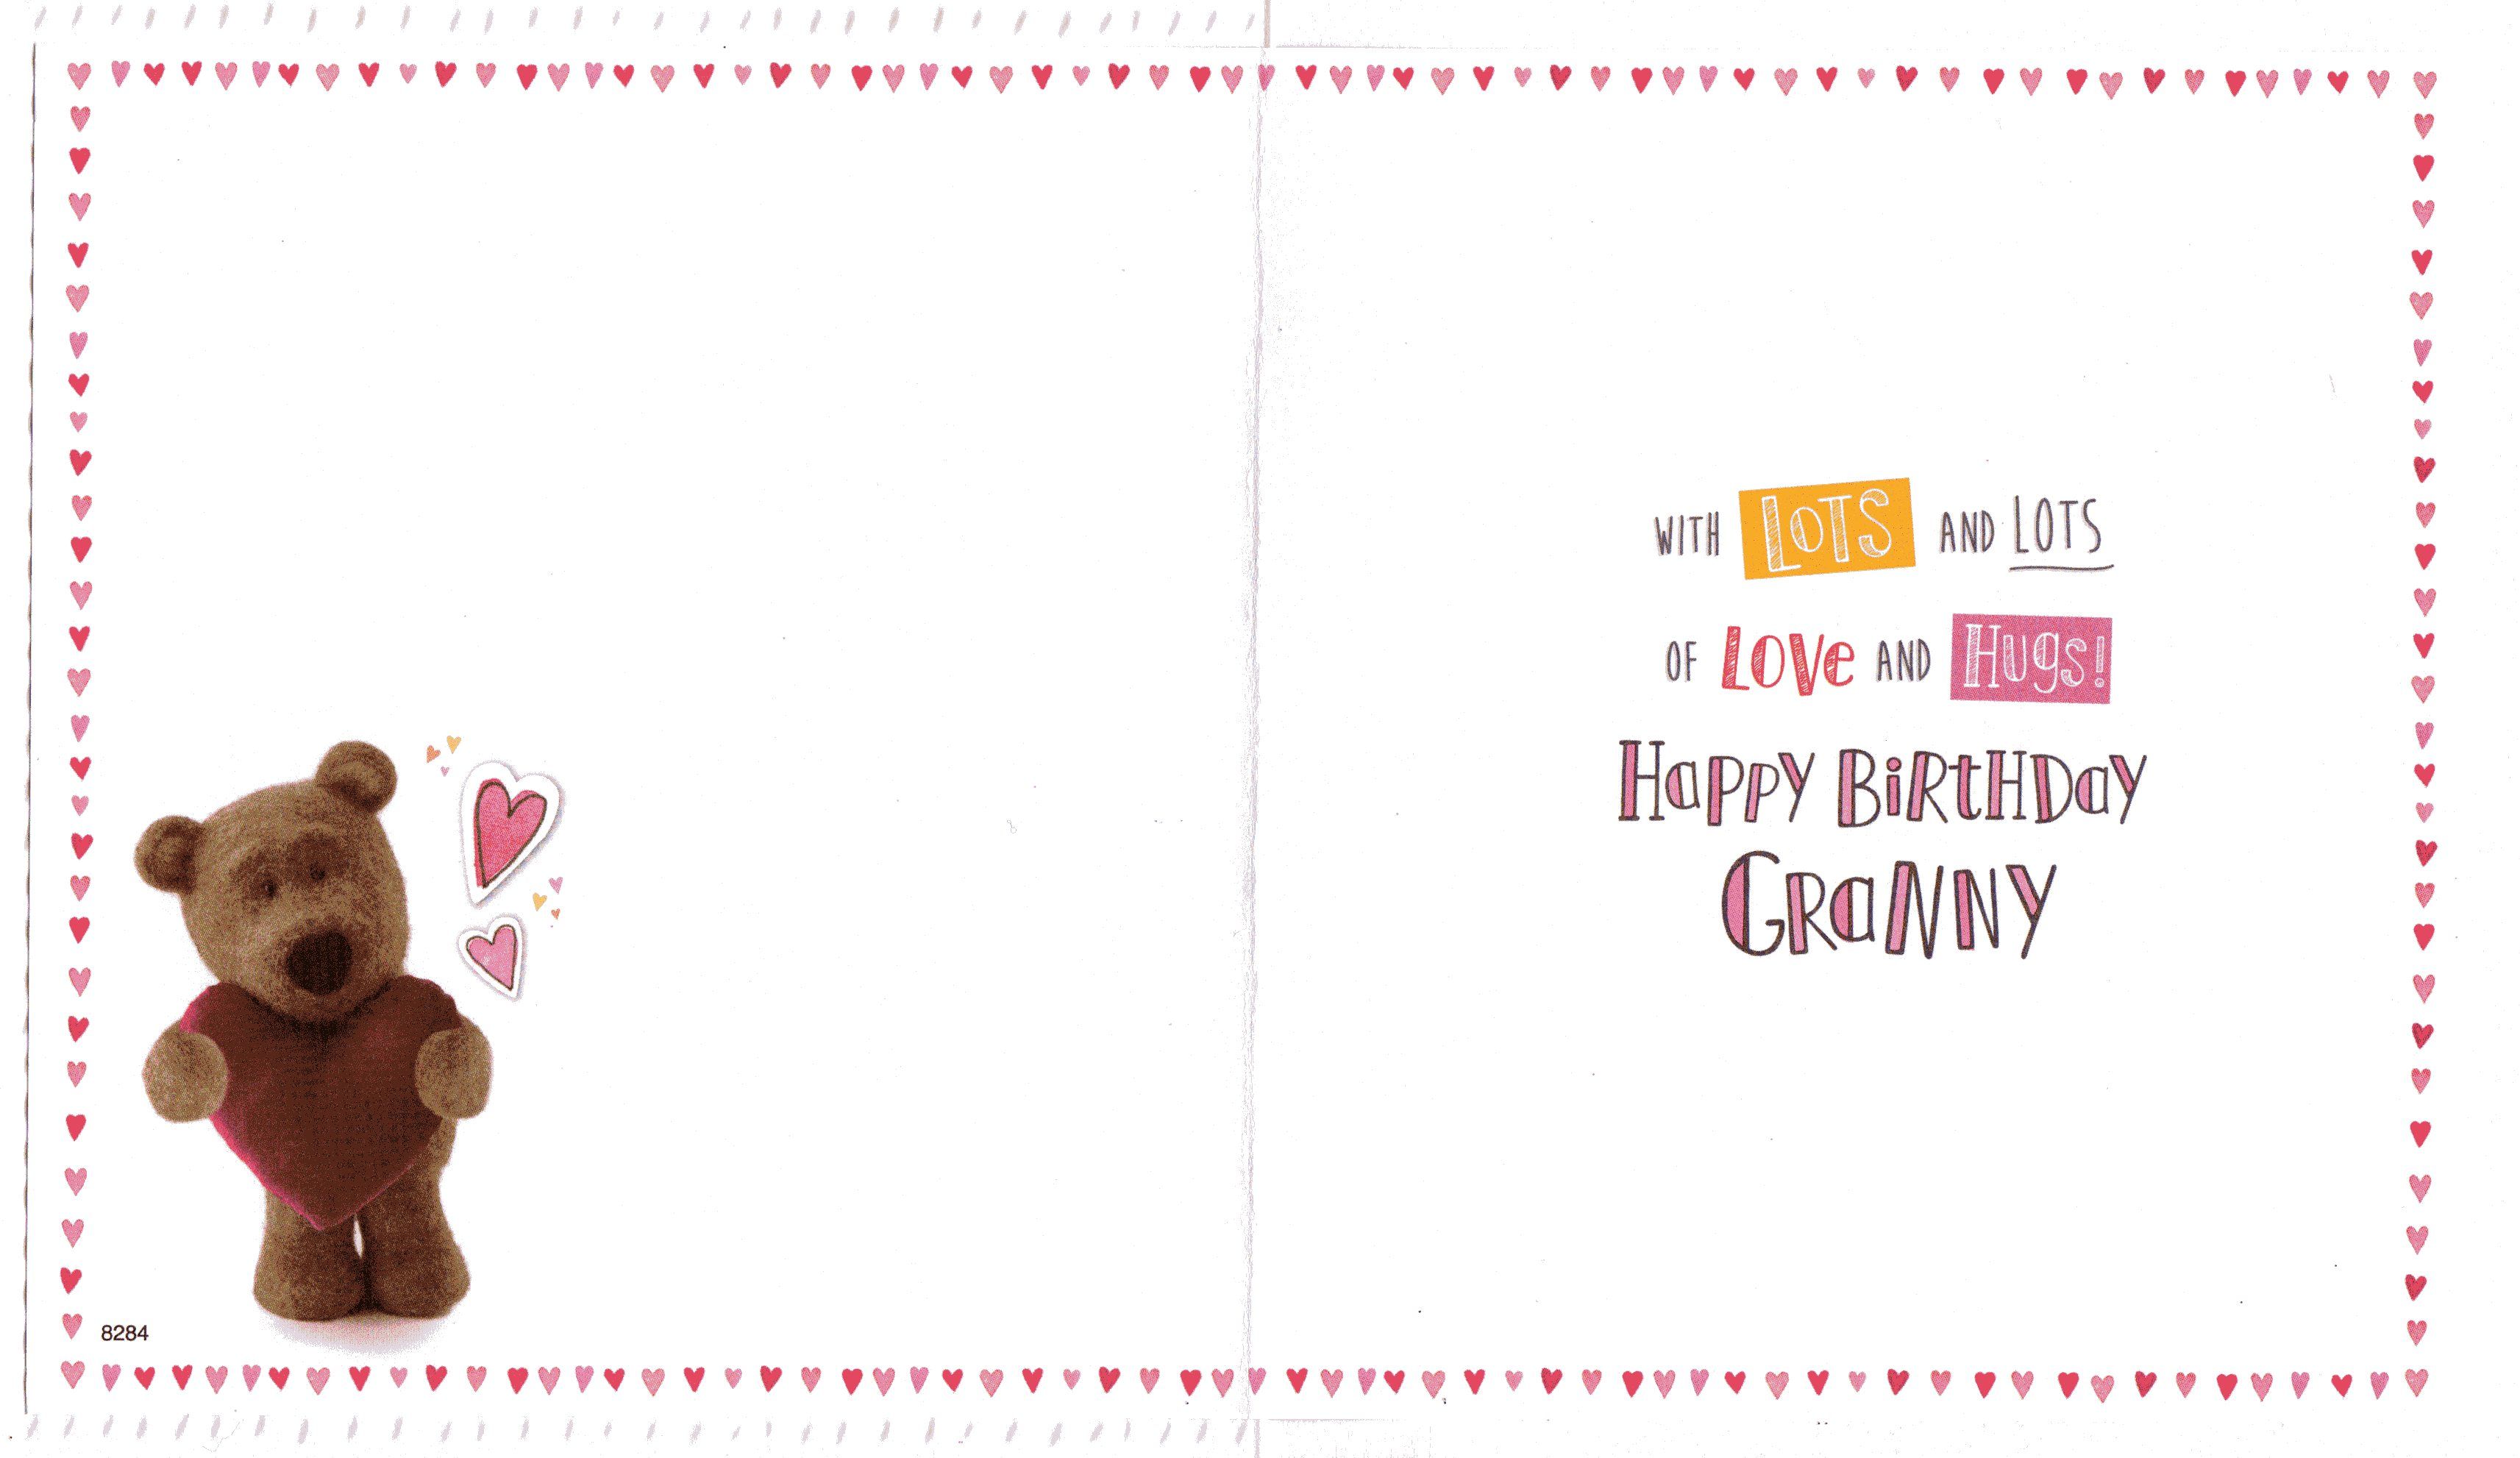 WITH LOTS AND LOTS
OF LOVE AND HUGS!
HAPPY BIRTHDAY
GRANNY
8284